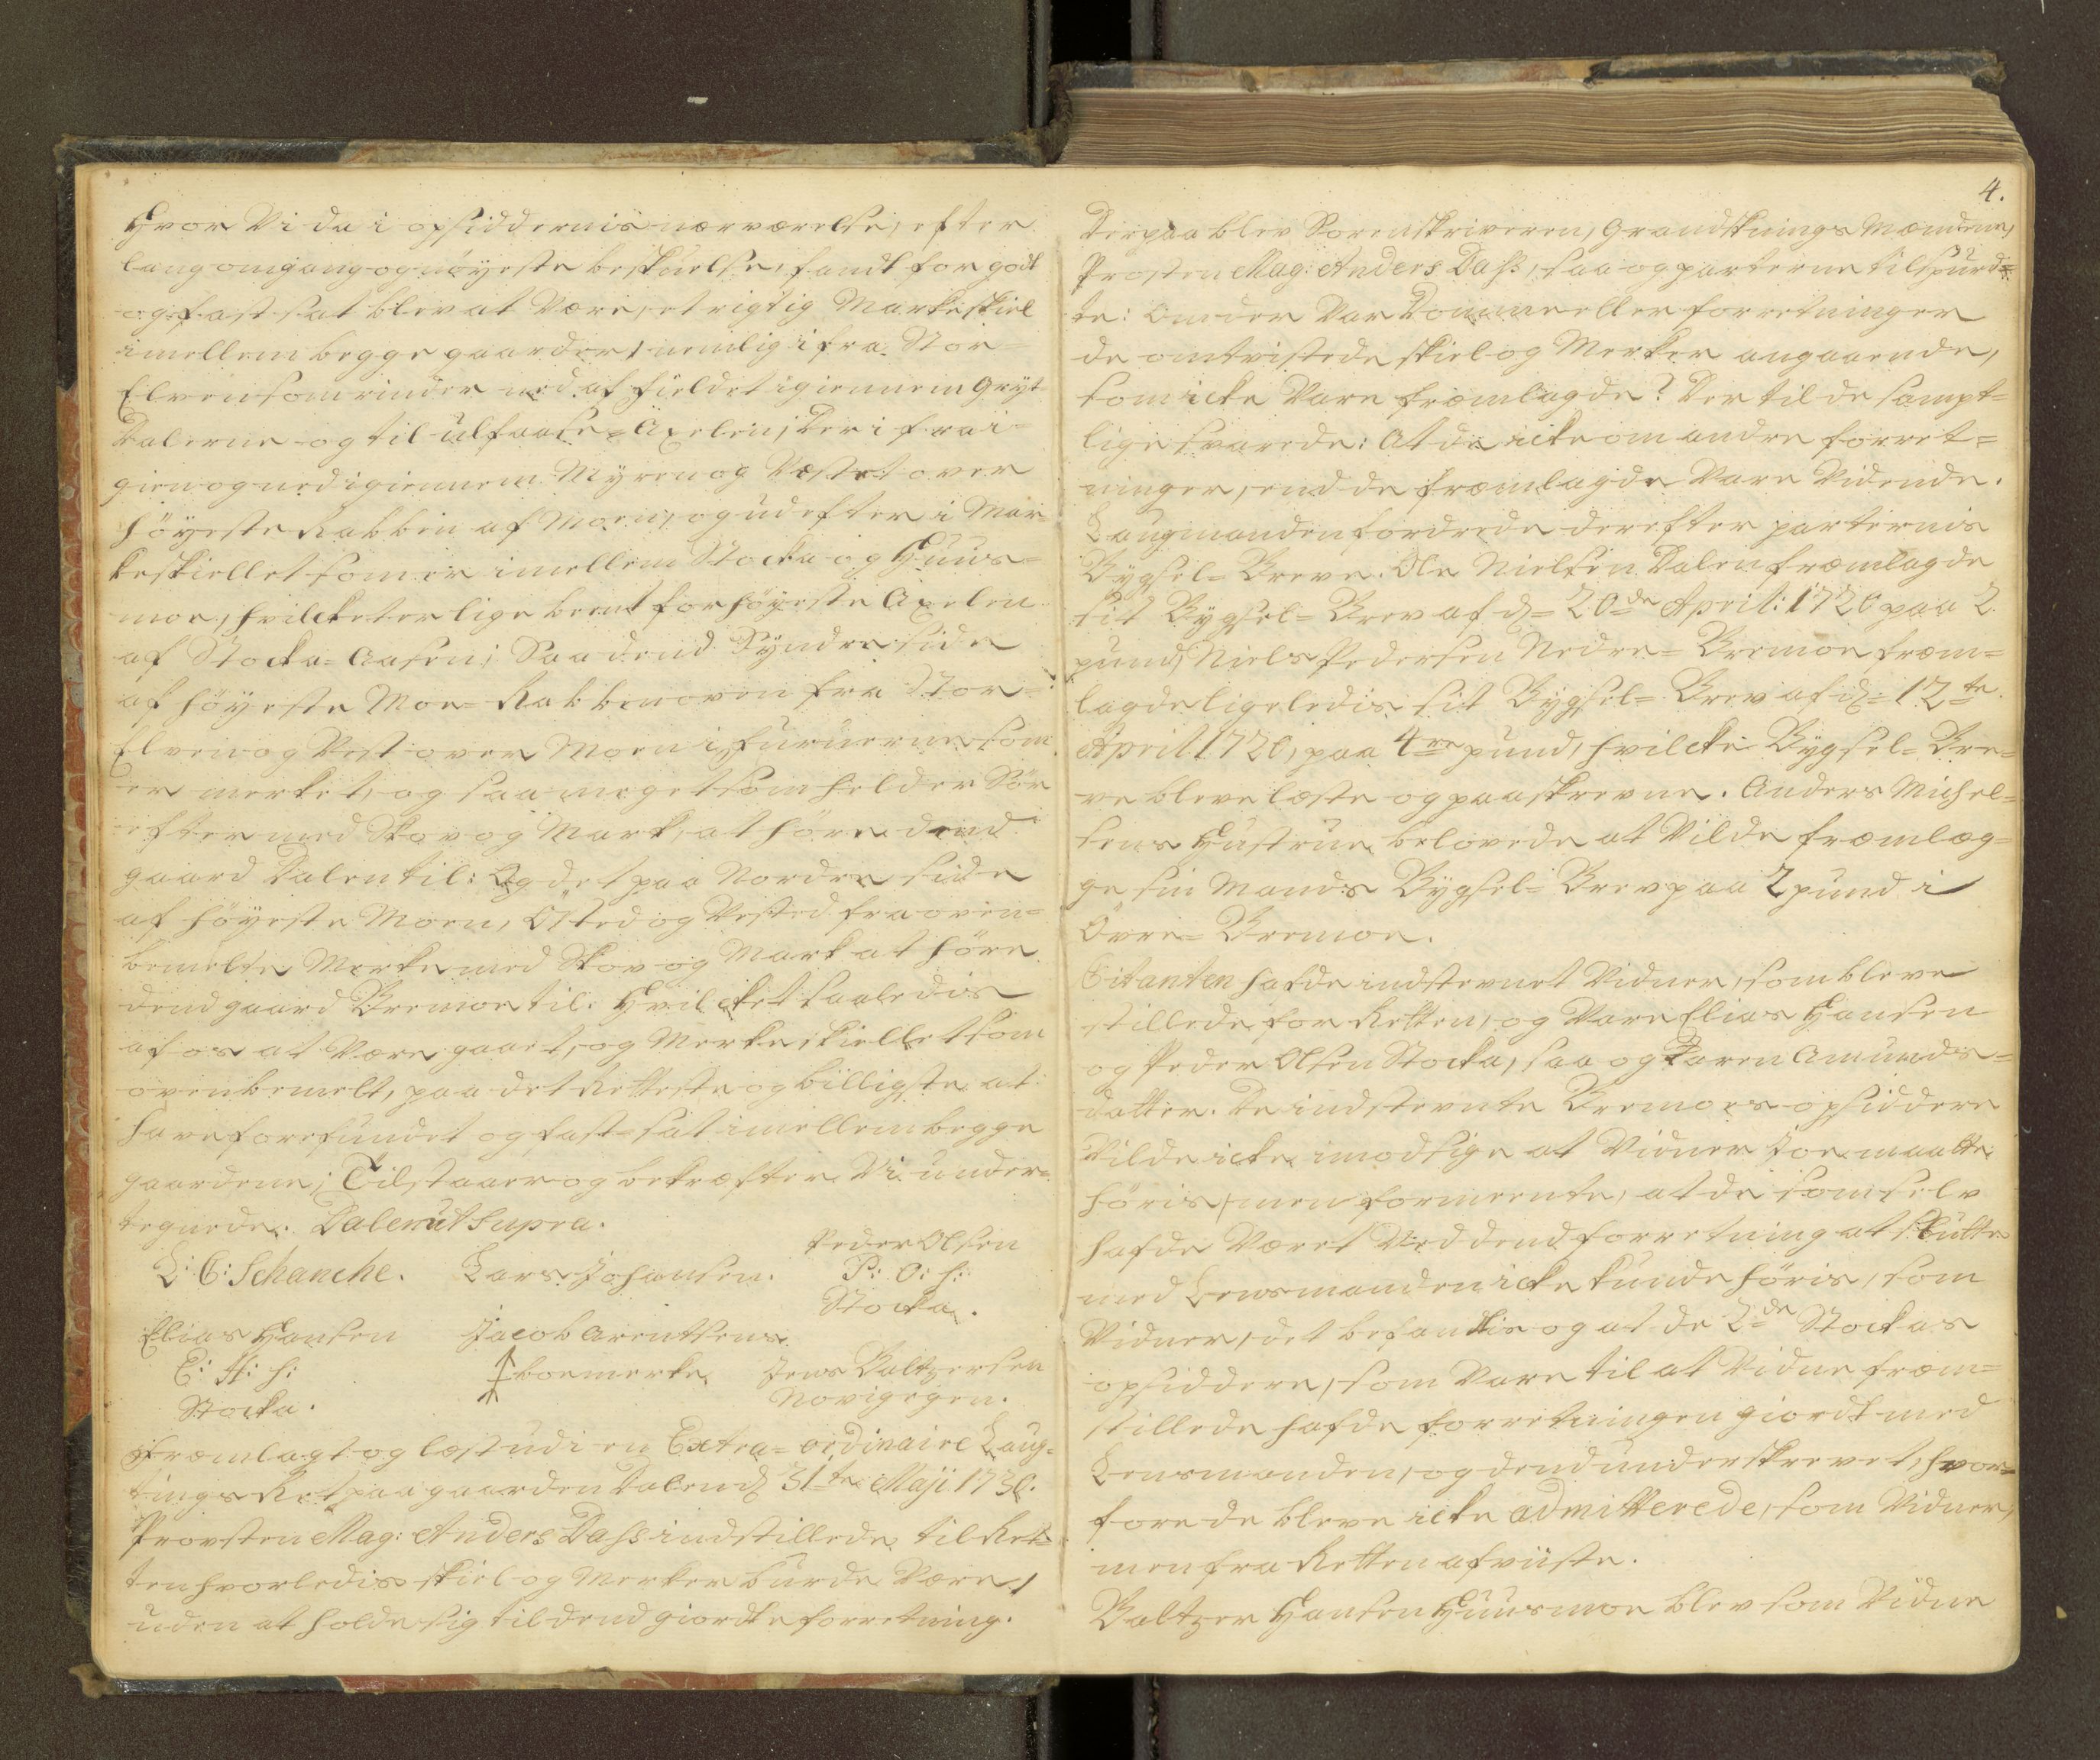 Hvor Vi da i opsiddernis nærværelse, efter
lang omgang og nöyeste beskuelse, fandt for godt
og fast sat blev at Være, et rigtig Markeskiel
imellem begge gaarder, nemlig ifra Stor-
Elven som rinder ned af fieldet igiennem Gryt-
Dalerne og til Ulfaase-Axelen, der ifra i-
gien og ned igiennem Myren og Vestet over
höyeste Rabben af Moen, og ud efter i Mar-
keskiellet som er imellem Stocka og Huus-
moe, hvilcket er lige bent for höyeste Axelen
af Stocka-Aasen; Saa dend Syndre side
af höyeste Moe-Rabbe oven fra Stor-
Elven og Vest over Moen i furuerne som
er merket, og saa meget som helder Sör
efter med Skov og Mark, at höre dend
gaard Dalen til: Og det paa Nordre side
af höyeste Moen, Östed og Vested fra oven-
bemelte Merke med Skov og Mark at höre
dend gaard Bremoe til. Hvilcket saaledis
af os at Være gaaet, og Merkeskiellet som
ovenbemelt, paa det Retteste og billigste at
have forefundet og fast-sat imellem begge
gaardene; Tilstaar og bekræfter Vi under-
tegnede. Dalen ut supra.
Peder Olsen
L: C: Schanche. Lars Johansen. P: O: S:
Stocka.
Elias Hansen Jacob Arentsens
E: H: S: boemerke Jens Baltzersen
Stocka. Novigegen.
Fremlagt og læst udi en Extra-ordinaire Laug-
tings Ret paa gaarden Dalen d 31te Maji 1730.
Provsten Mag: Anders Dass indstillede til Ret-
ten hvorledis skiel og Merker burde Være,
uden at holde sig til dend giordte forretning.
4.
Derpaa blev Sorenskriveren, Grandsknings Mændene,
Prosten Mag: Anders Dass, saa og parterne tilspurd-
te: Om der Var Domme eller forretninger
de omtvistede skiel og Merker angaaende,
som icke Vare fremlagde? Der til de sampt-
lige svarede: At de icke om andre forret-
ninger, end de fremlagde Vare Vidende.
Laugmanden fordrede derefter parternis
Bygsel-Breve. Ole Nielsen Dalen fremlagde
sit Bygsel-Brev af d= 20de April: 1720 paa 2
pund, Niels Pedersen Nedre-Bremoe frem-
lagde ligeledis sit Bygsel-Brev af d= 12te
April 1720, paa 4re pund, hvilcke Bygsel-Bre-
ve bleve læste og paaskrevne. Anders Michel-
sens Hustrue belovede at Vilde fremlæg-
ge sin Mands Bygsel-Brev paa 2 pund i
Övre-Bremoe.
Citanten hafde indstevnet Vidner, som bleve
stillede for Retten, og Vare Elias Hansen
og Peder Olsen Stocka, saa og Karen Amunds-
datter. De indstevnte Bremoes opsiddere
Vilde icke imodsige at Vidner joe maatte
höris, men formeente, at de som selv
hafde Været Ved dend forretning at slutte
med Lensmanden icke kunde höris, som
Vidner, det befandtis og at de 2de Stockas
opsiddere, som Vare til at Vidne frem-
stillede hafde forretningen giordt med
Lensmanden, og dend underskrevet, hvor-
fore de bleve icke admitterede, som Vidner,
men fra Retten afviiste.
Baltzer Hansen Huusmoe blev som Vidne